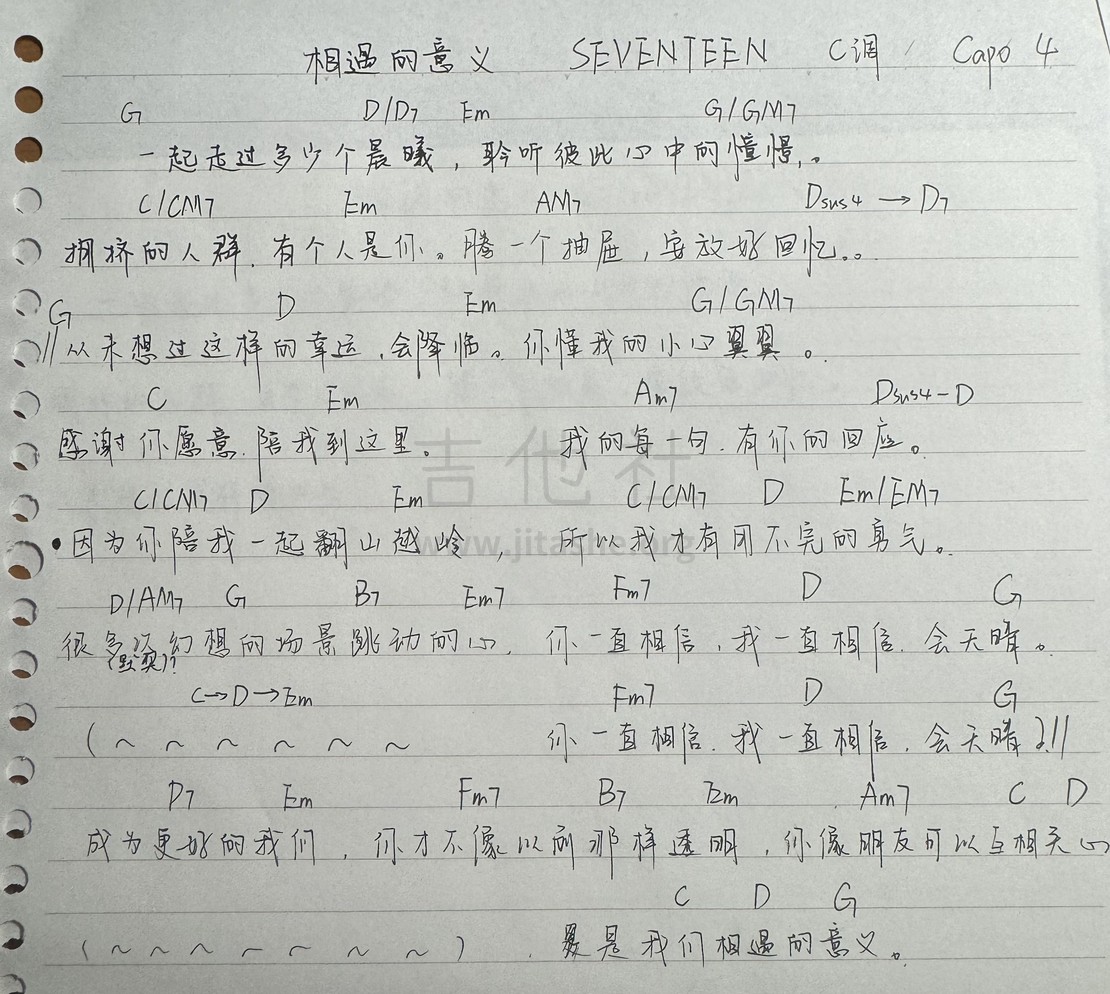 相遇的意义 SEVENTEEN C调 Capo 4
G D/D7 Em G/GM7
一起走过多少个晨曦，聆听彼此心中的憧憬，。
C/CM7 Em AM7 Dsus4 → D7
拥挤的人群．有个人是你。腾一个抽屉，安放好回忆。。
G D Em G/GM7
//从未想过这样的幸运．会降临。你懂我的小心翼翼。
C Em Am7 Dsus4-D
感谢你愿意．陪我到这里。 我的每一句．有你的回应。
吉他社
C/CM7 D Em C/CM7 D Em/EM7
•因为你陪我一起翻山越岭， 所以我才有用不完的勇气。
www.jitashe.org
D/AM7 G B7 Em7 Fm7 D G
很多次幻想的场景跳动的心． 你一直相信，我一直相信．会天晴。
(默契)?
C→D→Em Fm7 D G
(~ ~ ~ ~ ~ ~ 你一直相信．我一直相信．会天晴 }//
D7 Em Fm7 B7 Em Am7 C D
成为更好的我们，你才不像以前那样透明，你像朋友可以互相关心
C D G
(~ ~ ~ ~ ~ ~ ~) ．是我们相遇的意义。